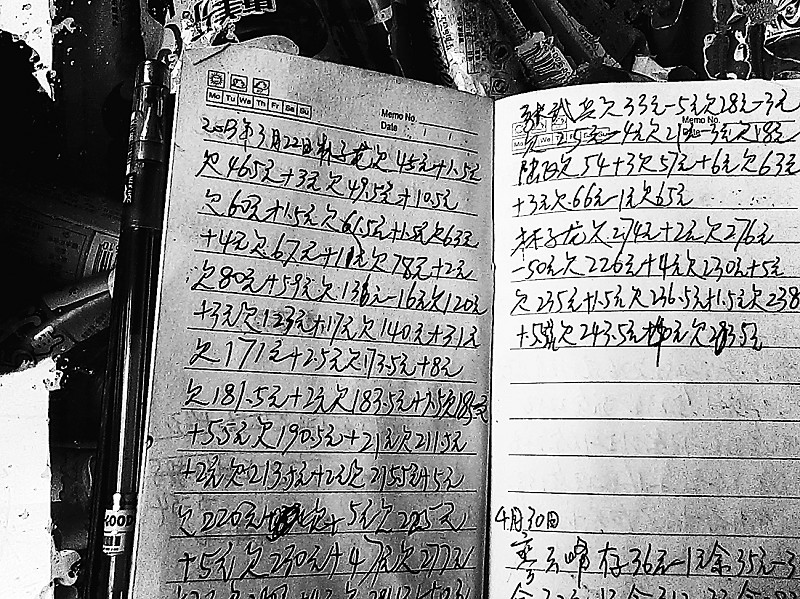 Mo Tu We Th Fr Sa Su
Memo No.
Date
3月22日林子龙欠45元+1.5元
欠46.5元+3元欠49.5元+10.5元
欠60元+1.5元欠61.5元+1.5元欠63元
+4元欠67元+11元欠78元+2元
欠80元+59元欠136元-16元欠120元
+3元欠123元+17元欠140元+31元
欠171元+2.5元欠173.5元+8元
欠181.5元+2元欠183.5元+1.5欠185元
+5.5元欠190.5元+21元欠211.5元
+2元欠213.5元+2元欠215.5元+5元
欠220元+欠+5元欠225元
+5元欠230元+47元欠277元
欠33元-5元欠28元-3元
Memo No.
欠25元-4元欠21-3元欠18元
欠54+3欠57元+6元欠63元
+3元欠66元-1元欠65元
林子龙欠274元+2元欠276元
-50元欠226元+4元欠230元+5元
欠235元+1.5元欠236.5元+1.5元欠238
+5.5元欠243.5元 元欠283.5元
4月30日
峰存36元-1元余35元-3